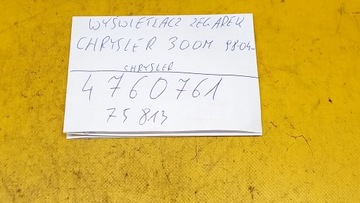 WYŚWIETLACZ ZEGAREK
CHRYSLER 300M 98-04-
CHRYSLER
4760761
75 813